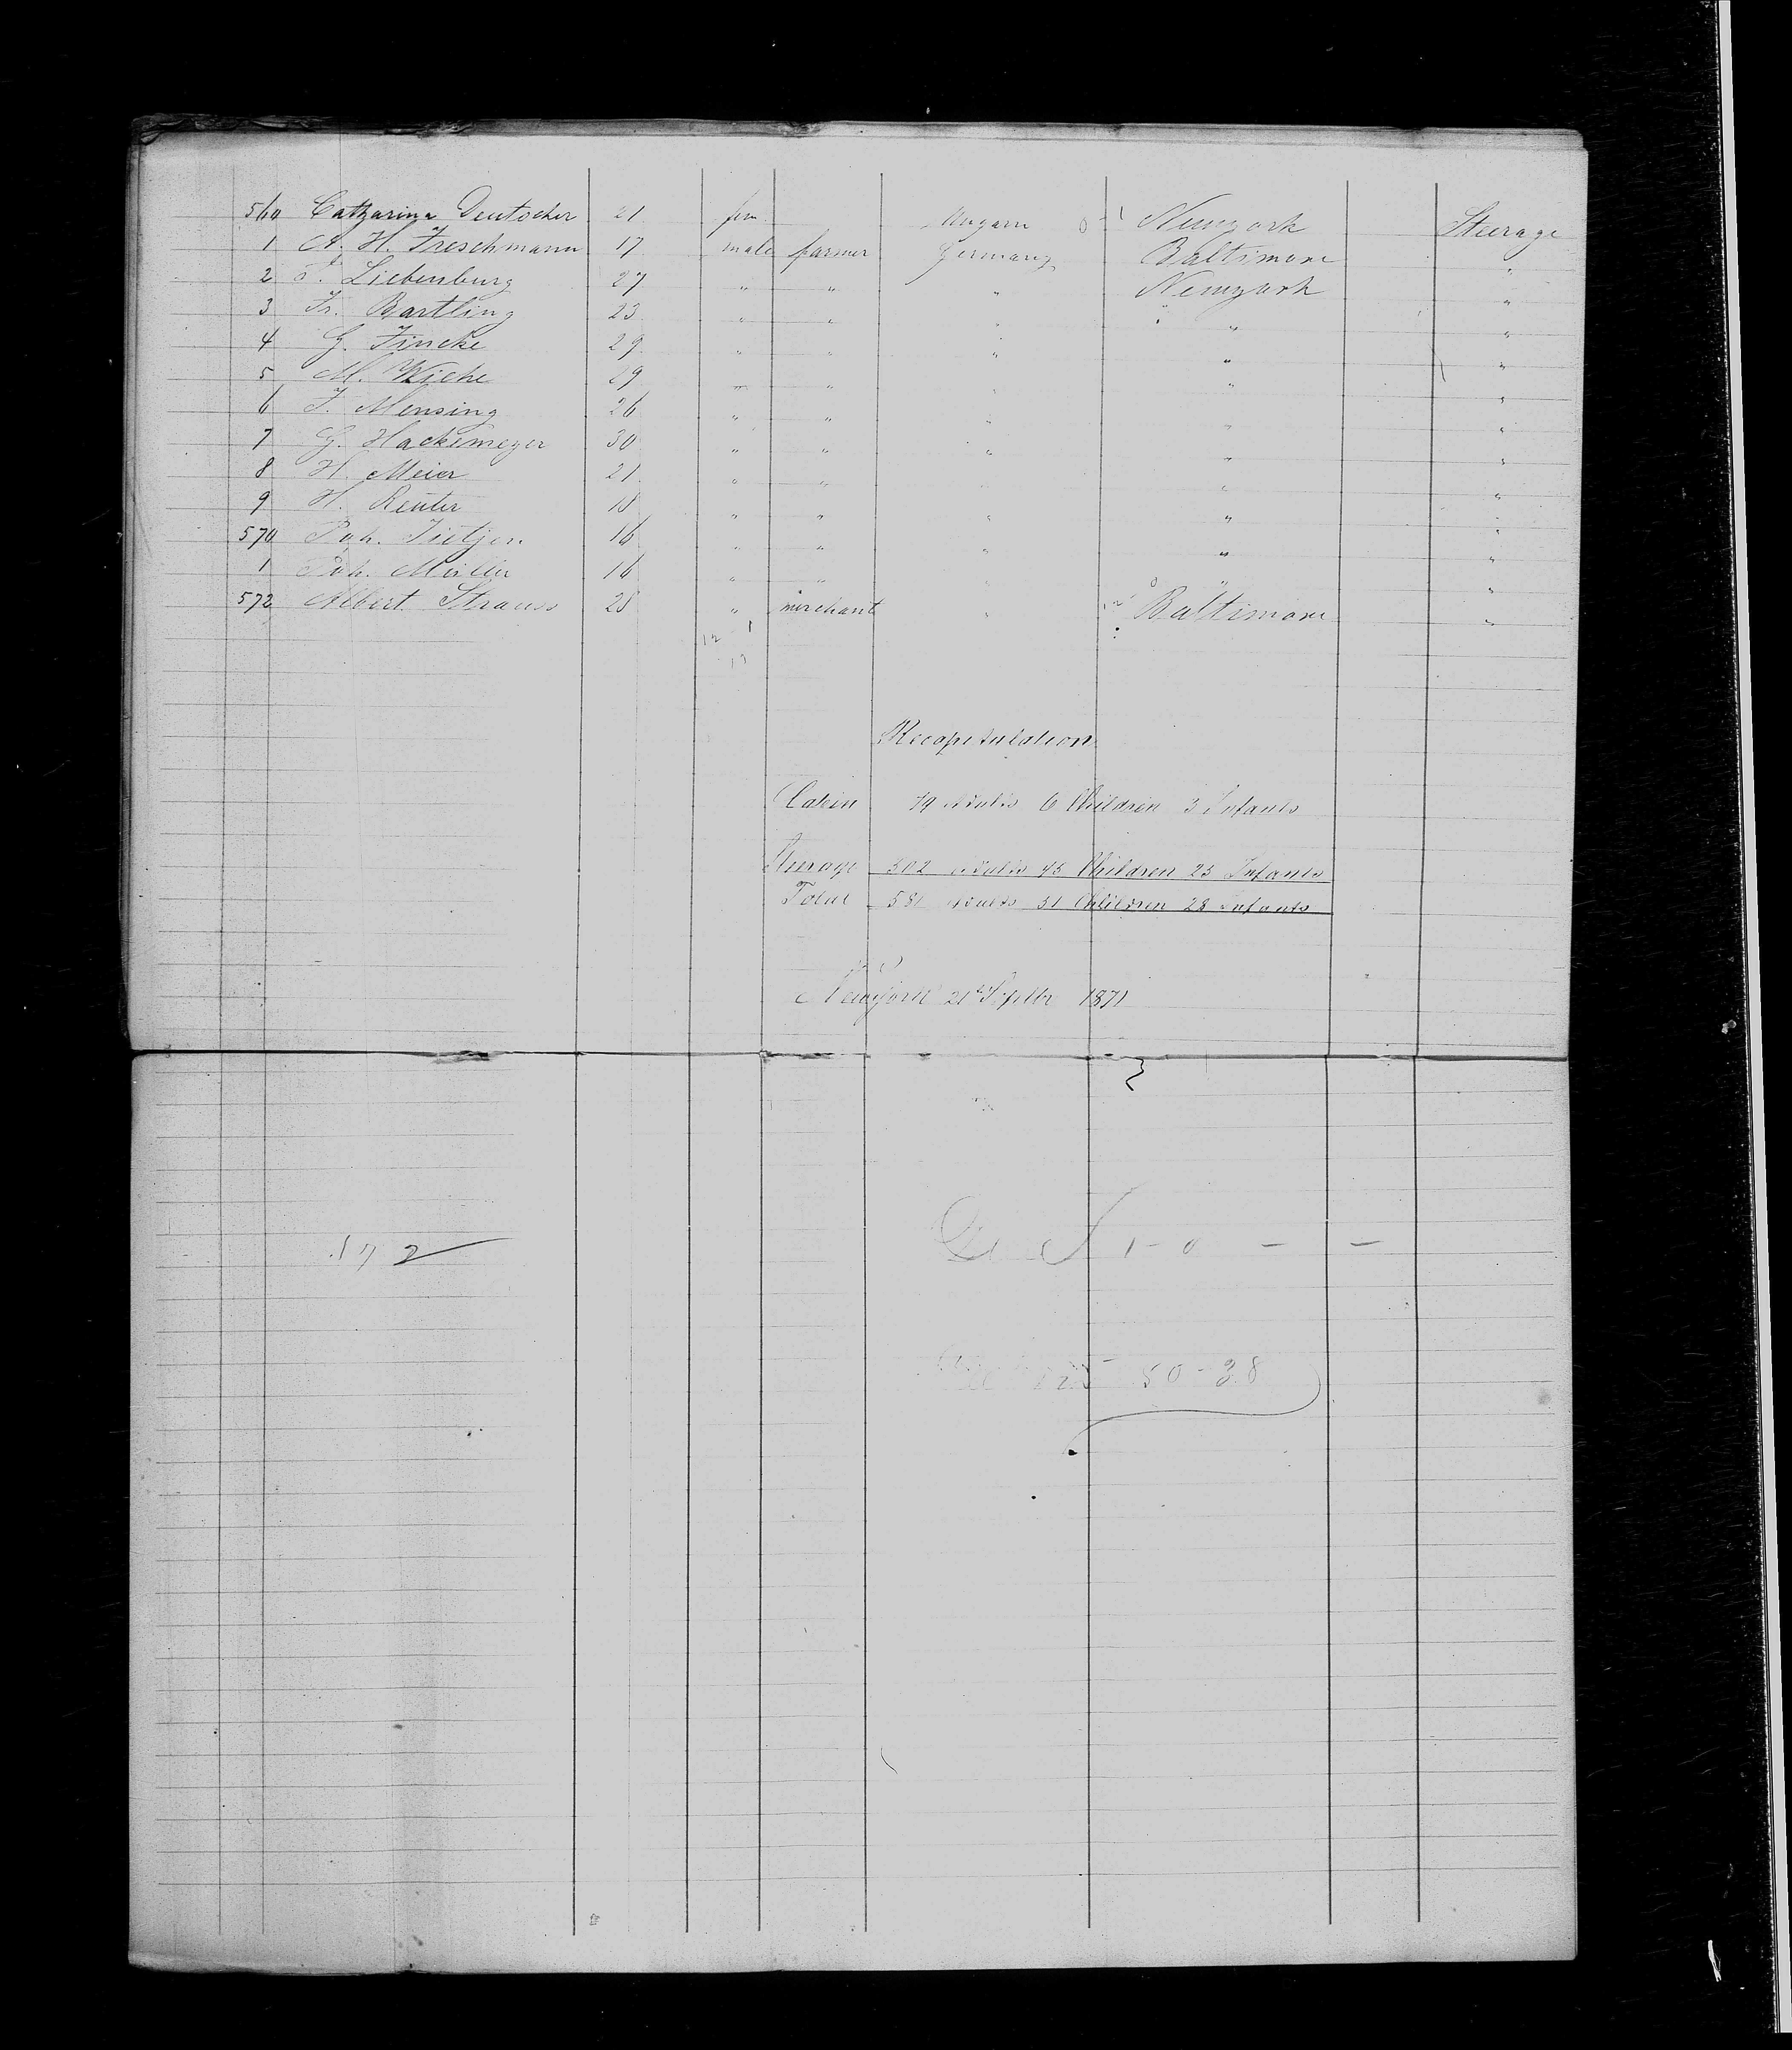 560 Catharina Deutscher 21 fem Ungarn Newyork Steerage
1 A. H. Freschmann 17 male farmer Germany Baltimore "
2 F. Liebenburg 27 " " " Newyork "
3 Fr. Bartling 23 " " " " "
4 G. Fincke 29 " " " " "
5 M. Wiehe 29 " " " " "
6 F. Mensing 26 " " " " "
7 G. Hackemeyer 30 " " " " "
8 H. Meier 21 " " " " "
9 H. Reuter 18 " " " " "
570 Joh. Tietjen 16 " " " " "
1 Joh. Müller 16 " " " " "
572 Albert Strauss 28 " merchant " Baltimore "
Recapitulation
Cabin 79 Adults 6 Children 3 Infants
Steerage 502 Adults 45 Children 25 Infants
Total 581 Adults 51 Children 28 Infants
Newyork 21st Septbr 1871
172
50-28